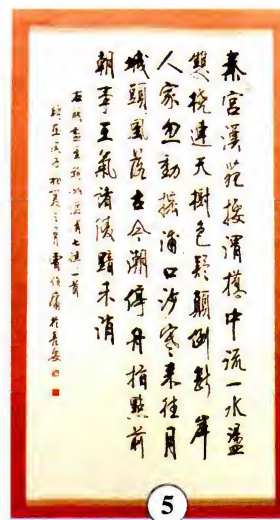 秦宫漢苑接渭橋中流一水盪
雙橈連天樹色疑顛倒斷岸
人家忽動搖浦口沙寒来往月
城頭風落古今潮停舟指點前
朝事王氣諸陵黯未消
七律一首
曹伯庸於長安
5